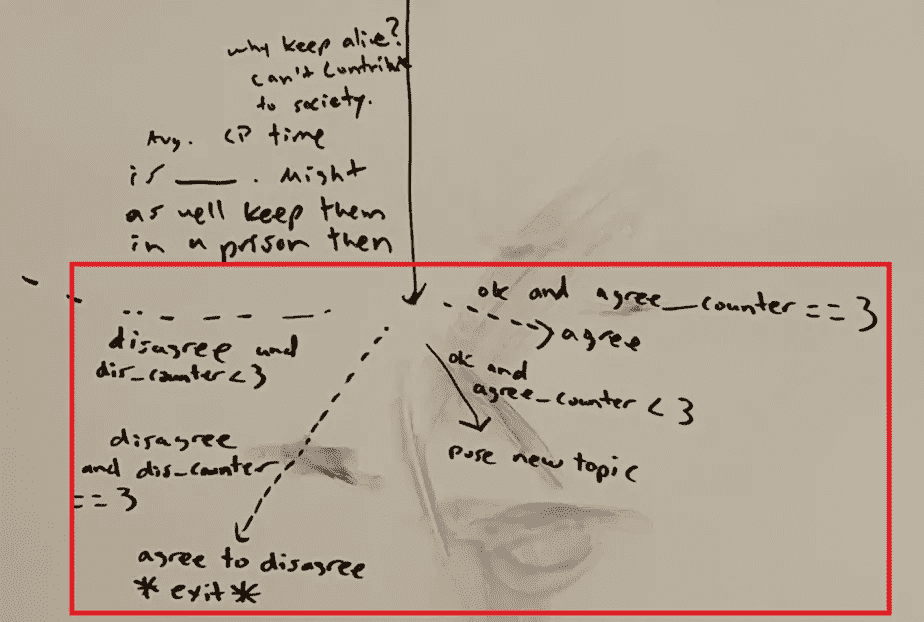 why keep alive?
can't contribute
to society.
Avg. CP time
is ____. Might
as well keep them
in a prison then
ok and agree_counter == 3
agree
disagree and
dis_counter < 3
ok and
agree_counter < 3
pose new topic
disagree
and dis_counter
== 3
agree to disagree
* exit *